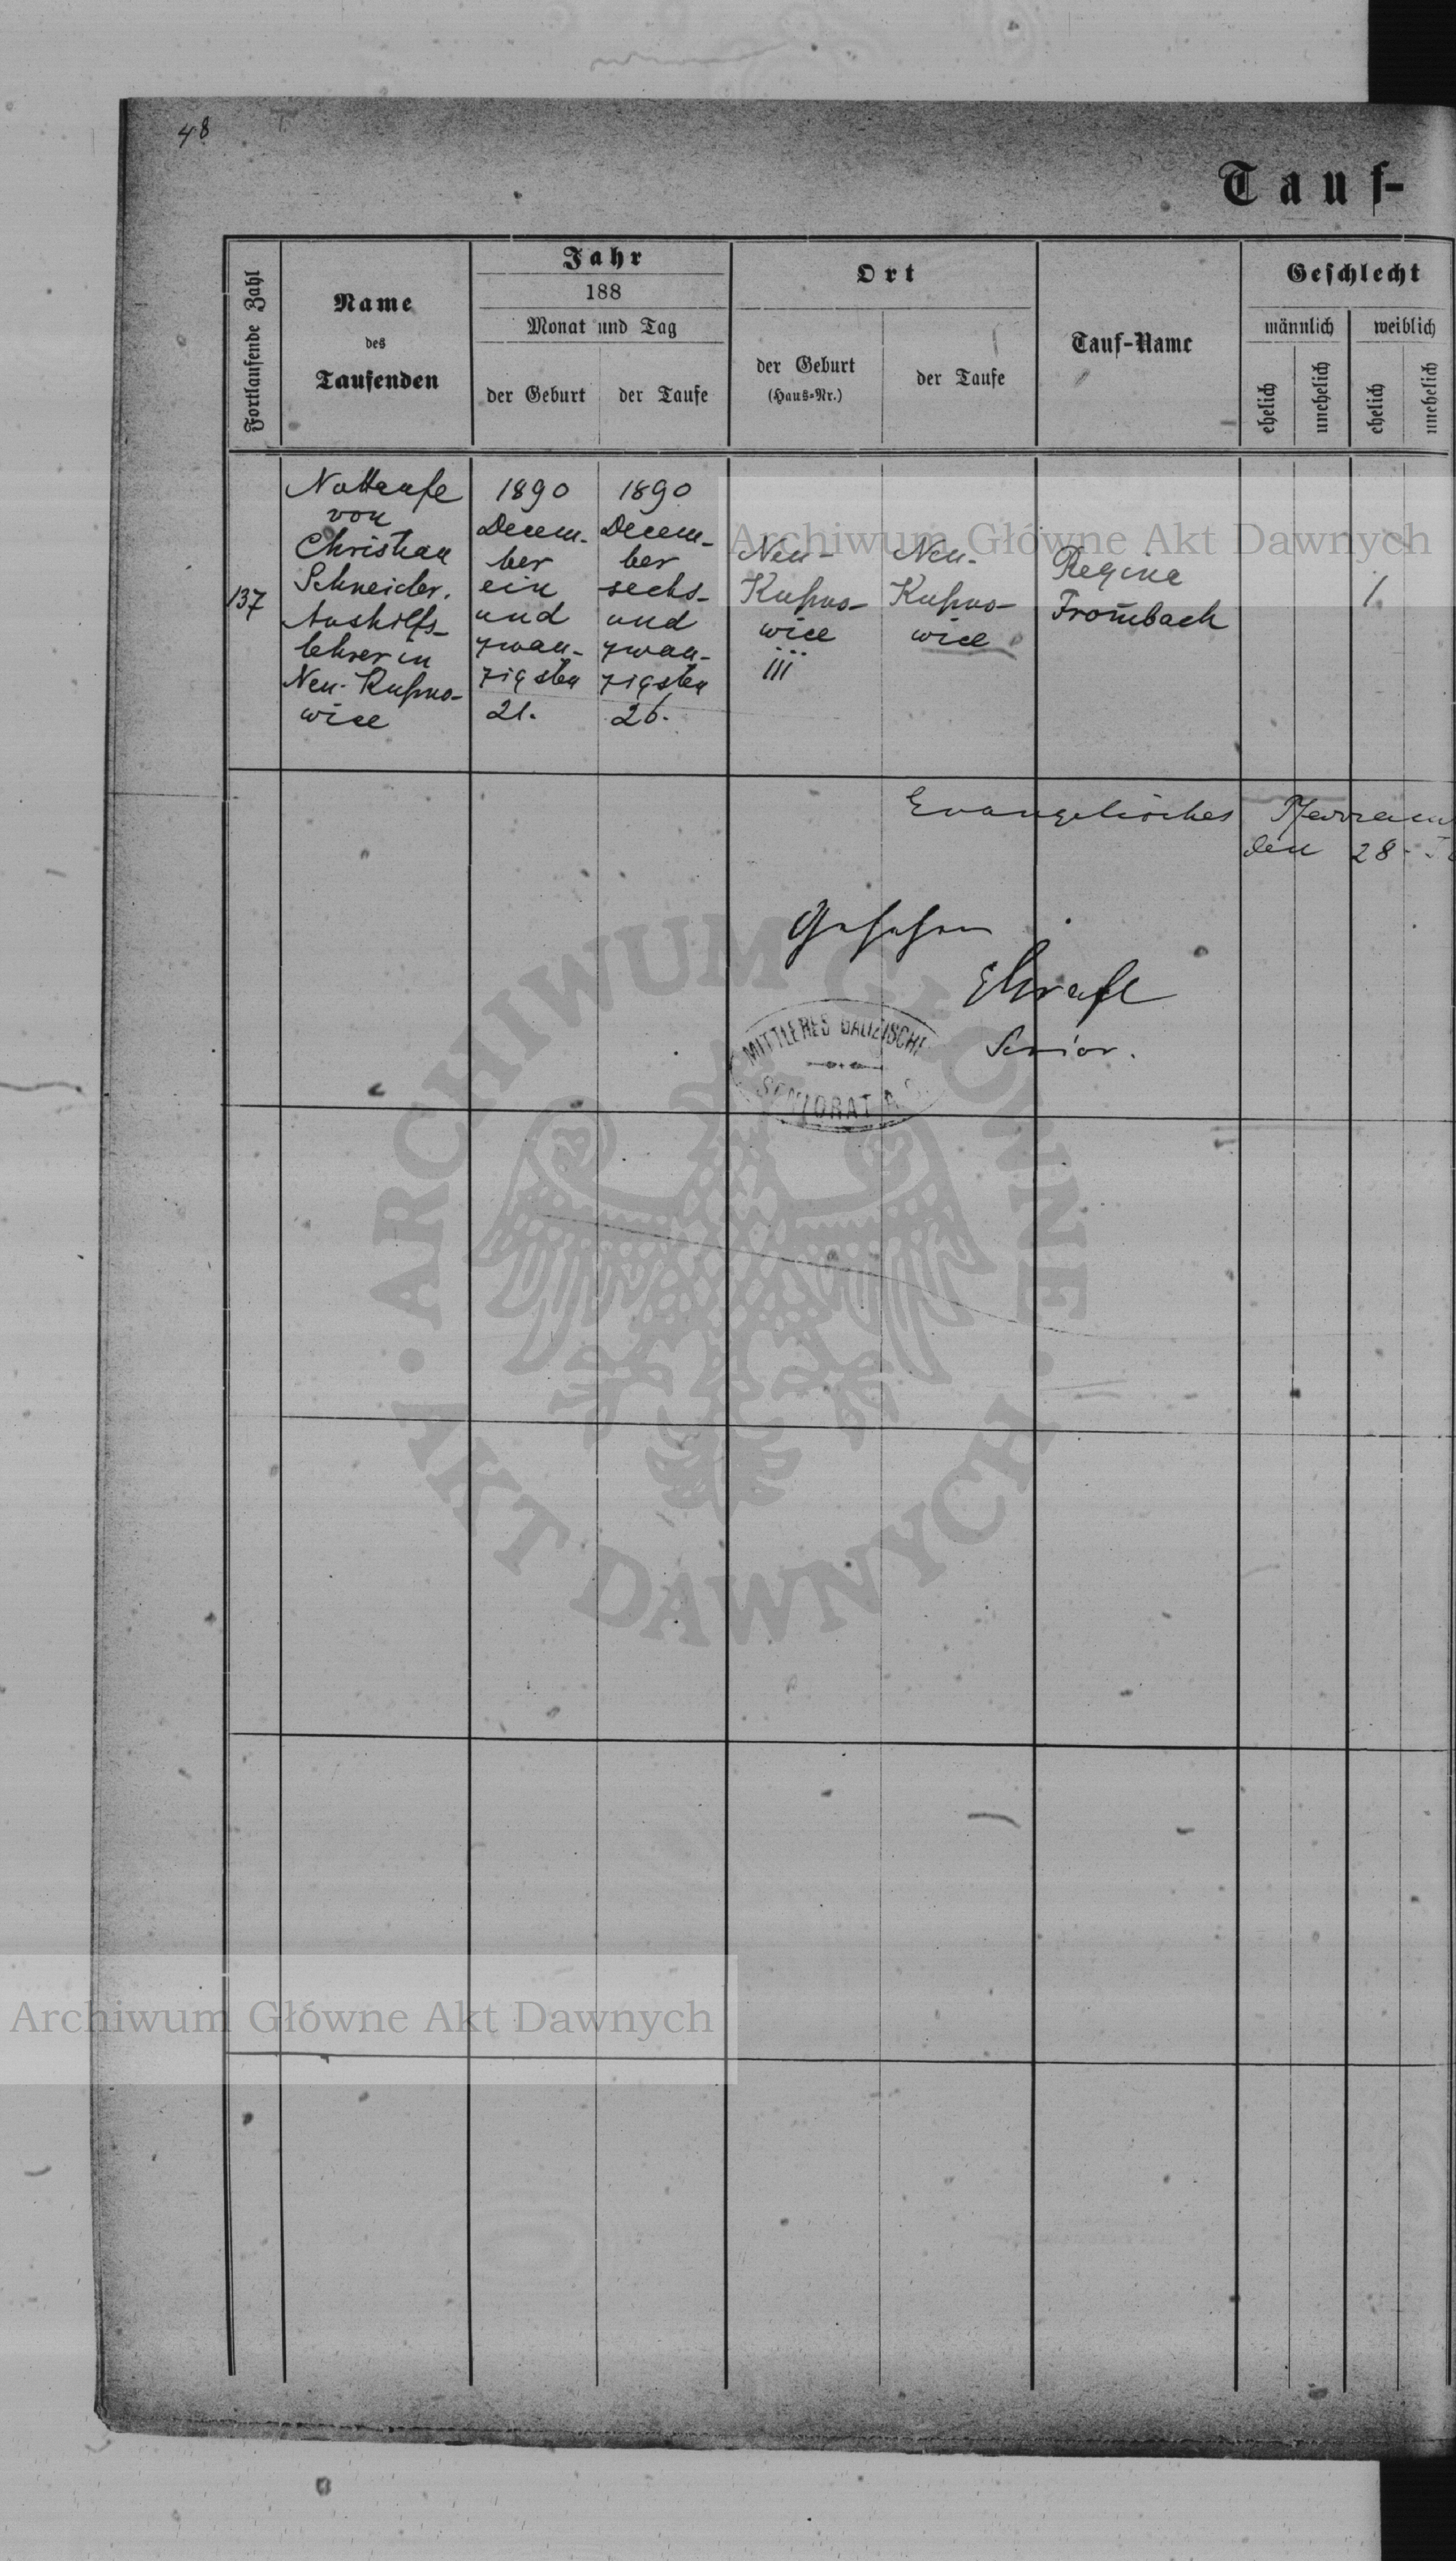 48
Tauf-
Fortlaufende Zahl
Name
des
Taufenden
Jahr
188
Monat und Tag
der Geburt
der Taufe
Ort
der Geburt
(Haus-Nr.)
der Taufe
Tauf-Name
Geschlecht
männlich
weiblich
ehelich
unehelich
ehelich
unehelich
137
Nottaufe
von
Christian
Schneider.
Aushilfs-
lehrer in
Neu-Kupno-
wice
1890
Decem-
ber
ein
und
zwan-
zigsten
21.
1890
Decem-
ber
sechs-
und
zwan-
zigsten
26.
Neu-
Kupno-
wice
111
Neu-
Kupno-
wice
Regina
From̄bach
1
Evangelisches Pfarram
den 28.
Gesehen
Senior.
MITTLERES GALIZISCHE
SENIORAT A.
Archiwum Główne Akt Dawnych
ARCHIWUM GŁÓWNE
AKT DAWNYCH
Archiwum Główne Akt Dawnych